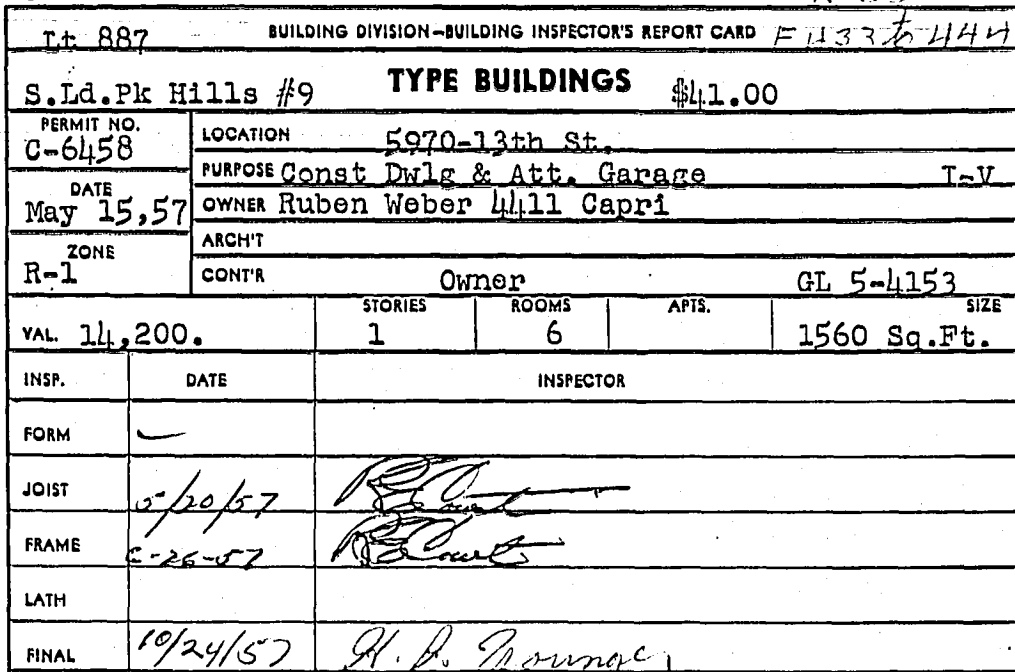 Lt 887 BUILDING DIVISION—BUILDING INSPECTOR'S REPORT CARD
S.Ld.Pk Hills #9 TYPE BUILDINGS $41.00
PERMIT NO. C-6458
LOCATION 5970-13th St.
PURPOSE Const Dwlg & Att. Garage I-V
DATE May 15,57
OWNER Ruben Weber 4411 Capri
ARCH'T
ZONE R-1
CONT'R Owner GL 5-4153
VAL. 14,200. STORIES 1 ROOMS 6 APTS. SIZE 1560 Sq.Ft.
INSP. DATE INSPECTOR
FORM
JOIST 5/20/57
FRAME 26-57
LATH
FINAL 10/24/57 H.